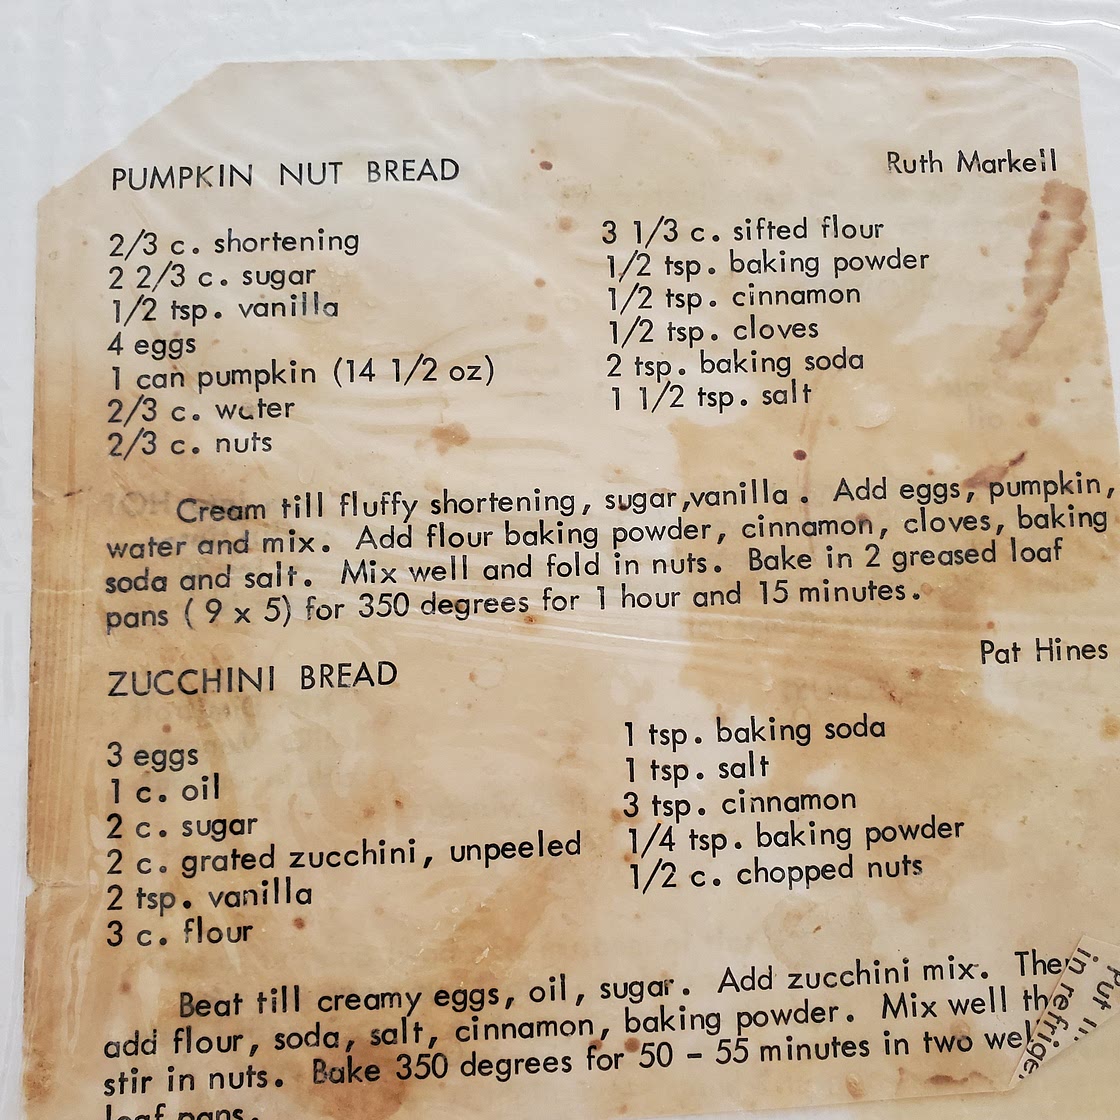 PUMPKIN NUT BREAD
Ruth Markell
2/3 c. shortening
2 2/3 c. sugar
1/2 tsp. vanilla
4 eggs
1 can pumpkin (14 1/2 oz)
2/3 c. water
2/3 c. nuts
3 1/3 c. sifted flour
1/2 tsp. baking powder
1/2 tsp. cinnamon
1/2 tsp. cloves
2 tsp. baking soda
1 1/2 tsp. salt
Cream till fluffy shortening, sugar,vanilla. Add eggs, pumpkin,
water and mix. Add flour baking powder, cinnamon, cloves, baking
soda and salt. Mix well and fold in nuts. Bake in 2 greased loaf
pans ( 9 x 5) for 350 degrees for 1 hour and 15 minutes.
ZUCCHINI BREAD
Pat Hines
3 eggs
1 c. oil
2 c. sugar
2 c. grated zucchini, unpeeled
2 tsp. vanilla
3 c. flour
1 tsp. baking soda
1 tsp. salt
3 tsp. cinnamon
1/4 tsp. baking powder
1/2 c. chopped nuts
Beat till creamy eggs, oil, sugar. Add zucchini mix.
add flour, soda, salt, cinnamon, baking powder. Mix well
stir in nuts. Bake 350 degrees for 50 - 55 minutes in two
loaf pans.
Put
in refrige